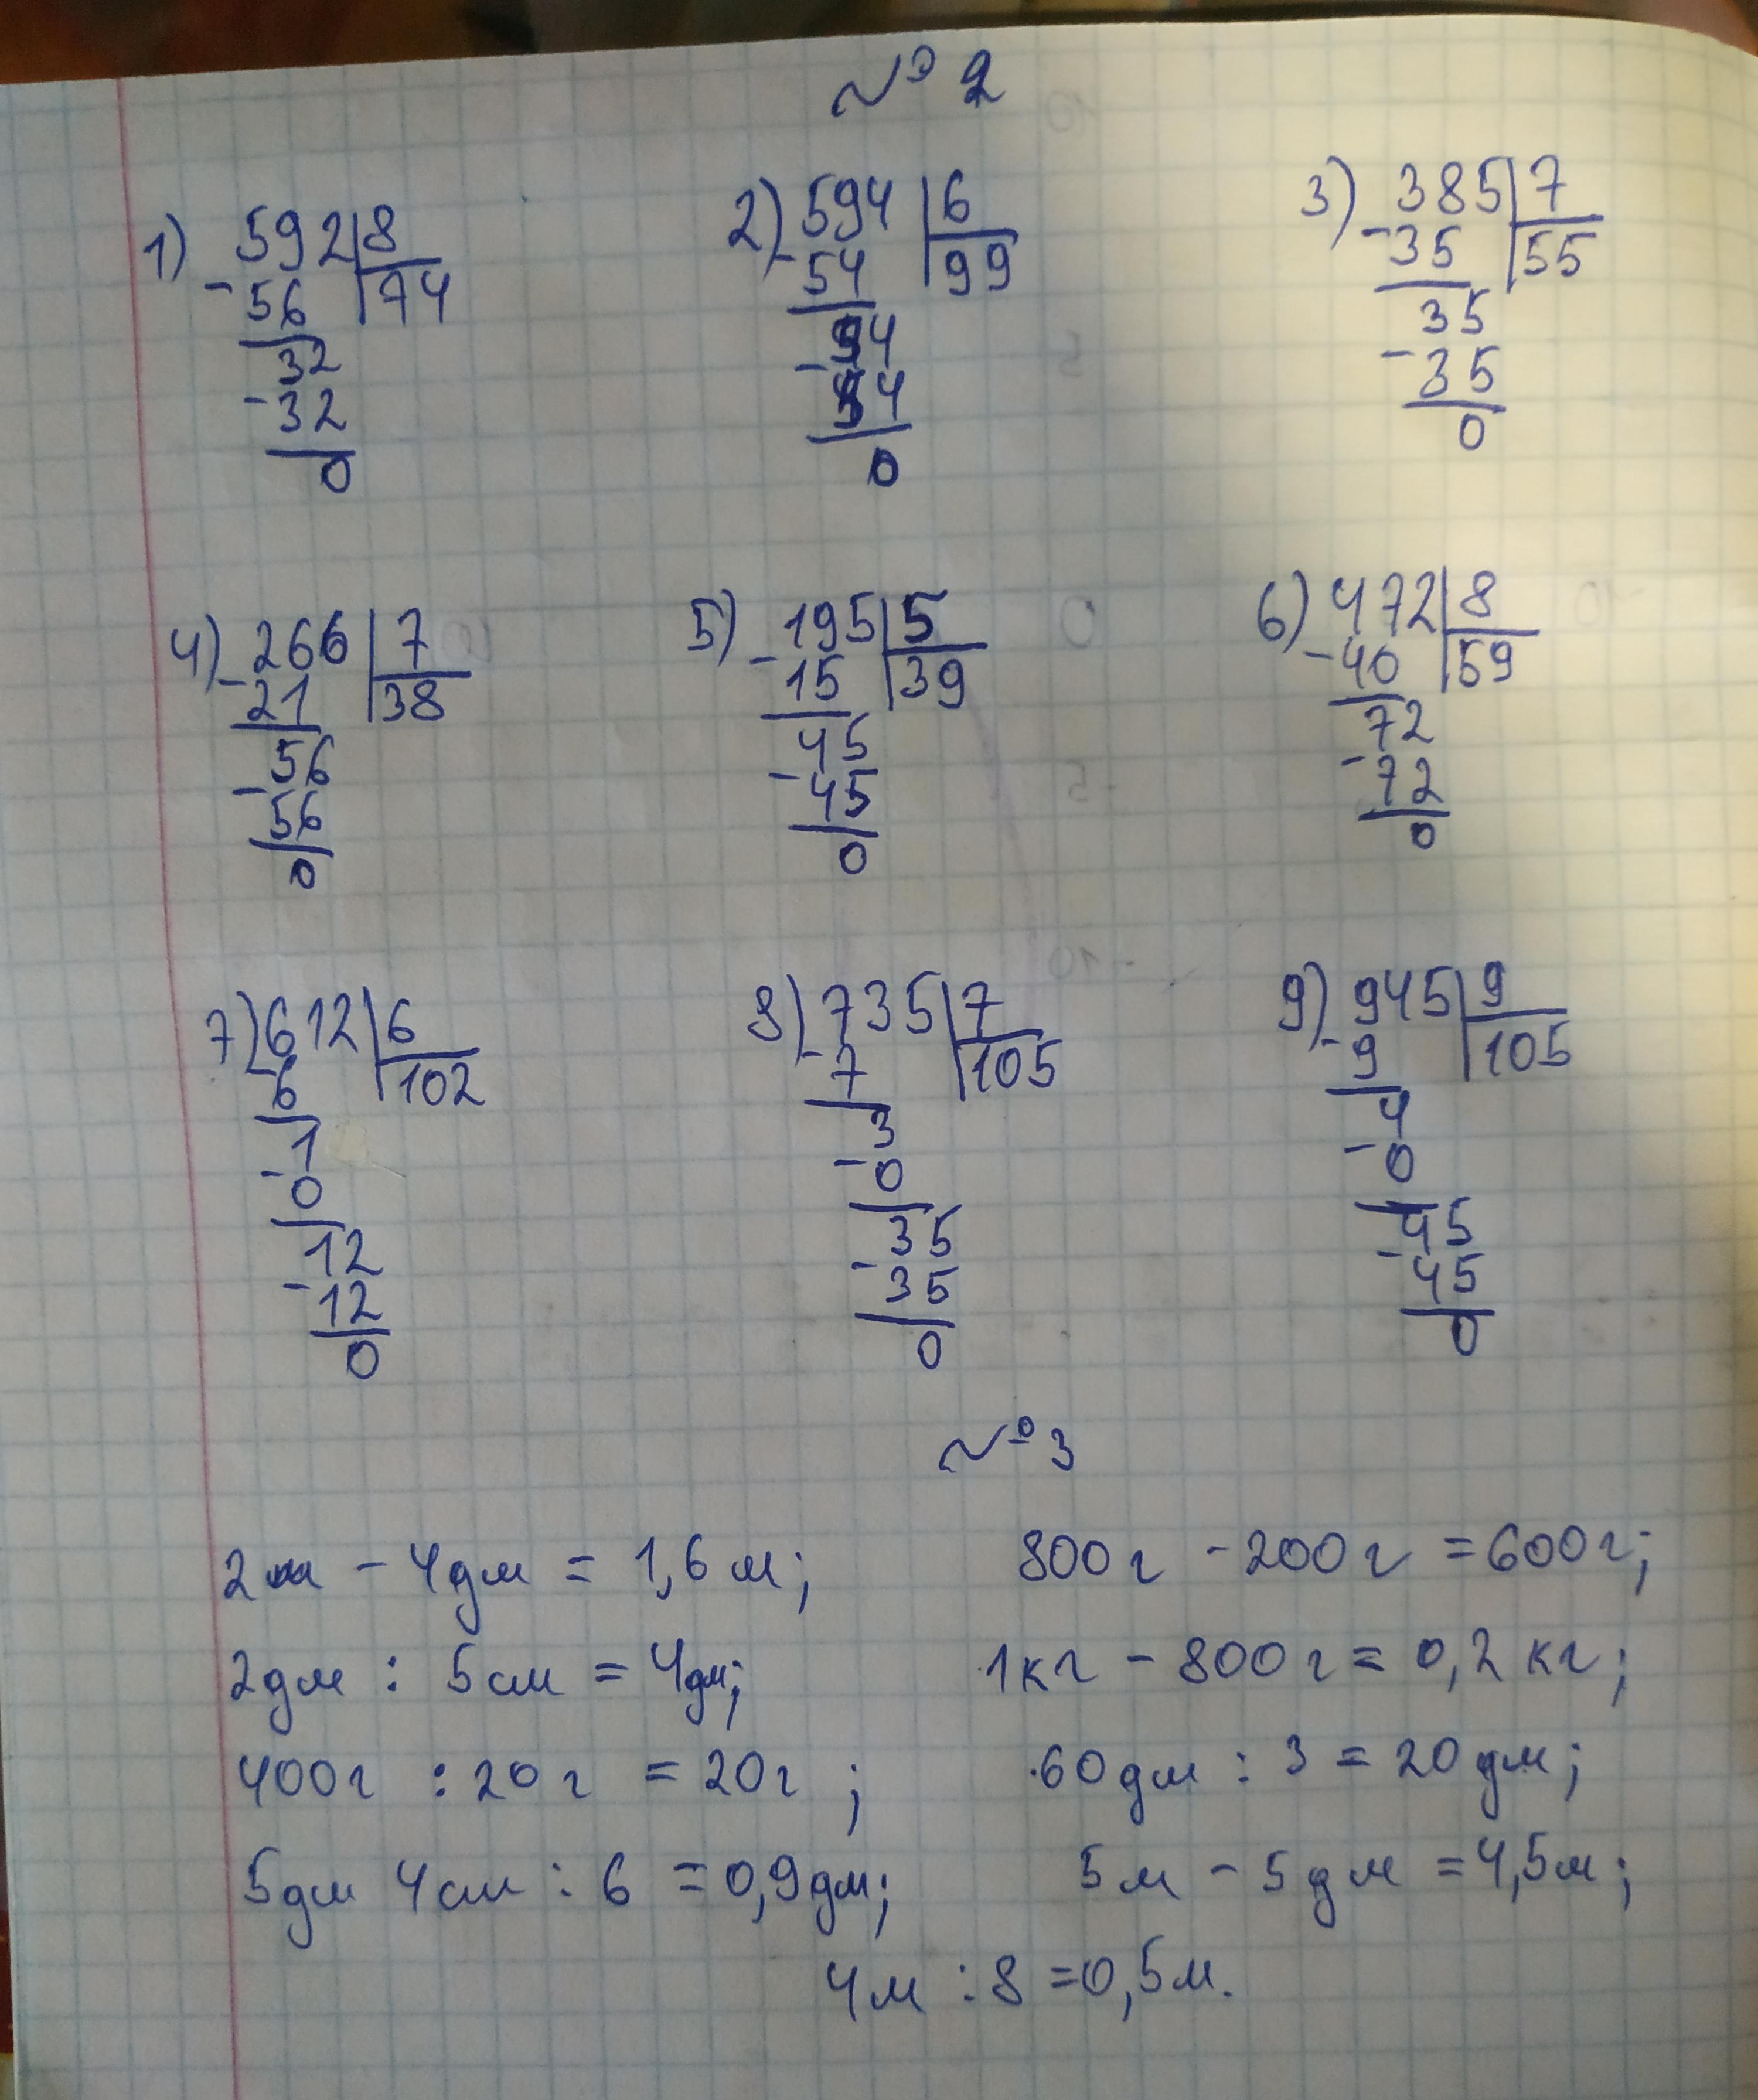 № 2
1) 592 | 8
- 56 | 74
32
- 32
0
2) 594 | 6
- 54 | 99
54
- 54
0
3) 385 | 7
- 35 | 55
35
- 35
0
4) 266 | 7
- 21 | 38
56
- 56
0
5) 195 | 5
- 15 | 39
45
- 45
0
6) 472 | 8
- 40 | 59
72
- 72
0
7) 612 | 6
- 6 | 102
1
- 0
12
- 12
0
8) 735 | 7
- 7 | 105
3
- 0
35
- 35
0
9) 945 | 9
- 9 | 105
4
- 0
45
- 45
0
№ 3
2м - 4дм = 1,6м; 800г - 200г = 600г;
2дм : 5см = 4дм; 1кг - 800г = 0,2кг;
400г : 20г = 20г; 60дм : 3 = 20дм;
5дм 4см : 6 = 0,9дм; 5м - 5дм = 4,5м;
4м : 8 = 0,5м.